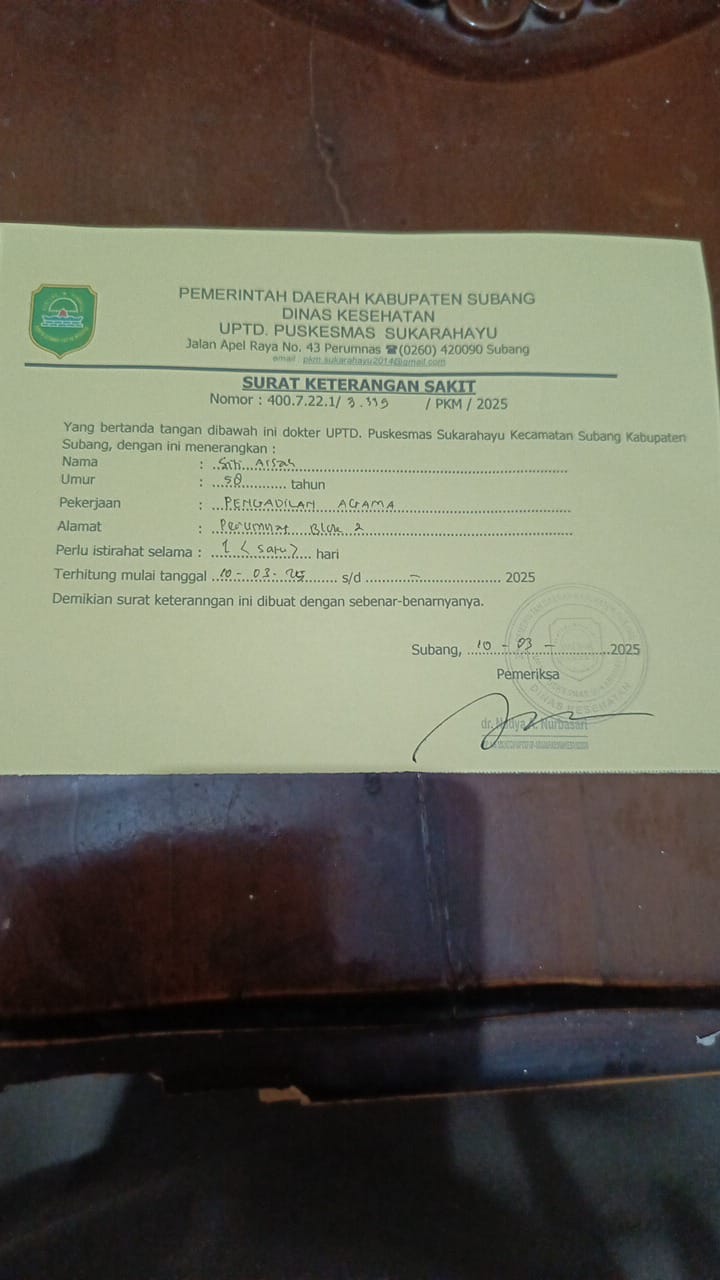 PEMERINTAH DAERAH KABUPATEN SUBANG
DINAS KESEHATAN
UPTD. PUSKESMAS SUKARAHAYU
Jalan Apel Raya No. 43 Perumnas ☎(0260) 420090 Subang
email : pkm.sukarahayu2014@gmail.com
SURAT KETERANGAN SAKIT
Nomor : 400.7.22.1/ 3.339 / PKM / 2025
Yang bertanda tangan dibawah ini dokter UPTD. Puskesmas Sukarahayu Kecamatan Subang Kabupaten
Subang, dengan ini menerangkan :
Nama : Siti Aisah
Umur : 58 tahun
Pekerjaan : PENGADILAN AGAMA
Alamat : Perumnas Blok 2
Perlu istirahat selama : 1 (satu) hari
Terhitung mulai tanggal 10-03-25 s/d - 2025
Demikian surat keteranngan ini dibuat dengan sebenar-benarnyanya.
Subang, 10 - 03 - 2025
Pemeriksa
dr. Nadya A. Nurbasari
DINAS KESEHATAN